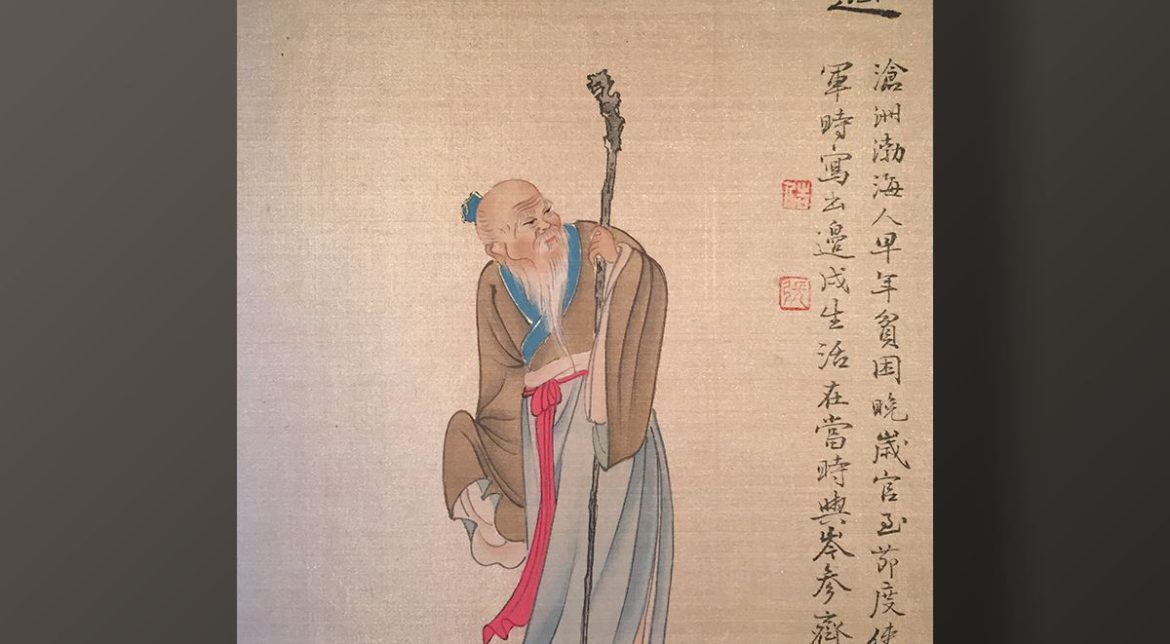 滄洲渤海人早年貧困晚歲官至節度使
軍時寫出邊戍生活在當時與岑參齊